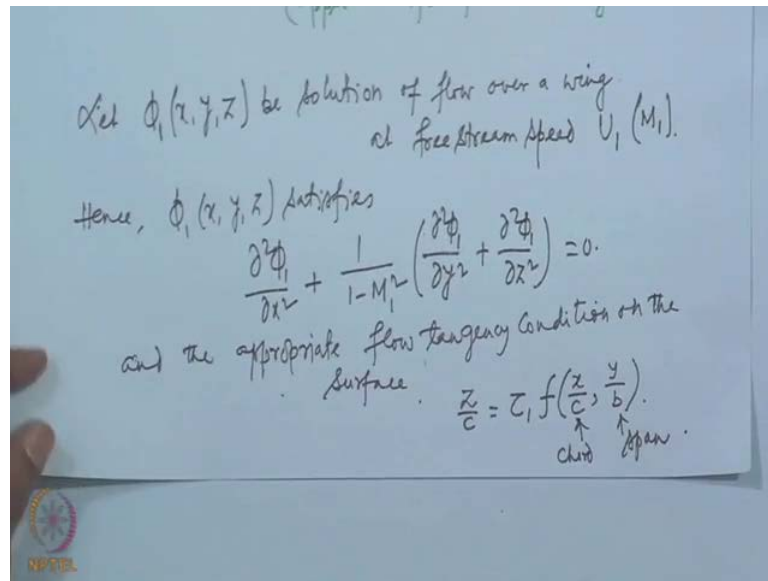 Let ϕ₁(x, y, z) be solution of flow over a wing
at free stream speed U₁ (M₁).
Hence, ϕ₁(x, y, z) satisfies
∂²ϕ₁/∂x² + 1/(1-M₁²) (∂²ϕ₁/∂y² + ∂²ϕ₁/∂z²) = 0.
and the appropriate flow tangency condition on the
surface. z/c = τ₁ f(x/c, y/b).
↑ ↑
chord span.
NPTEL